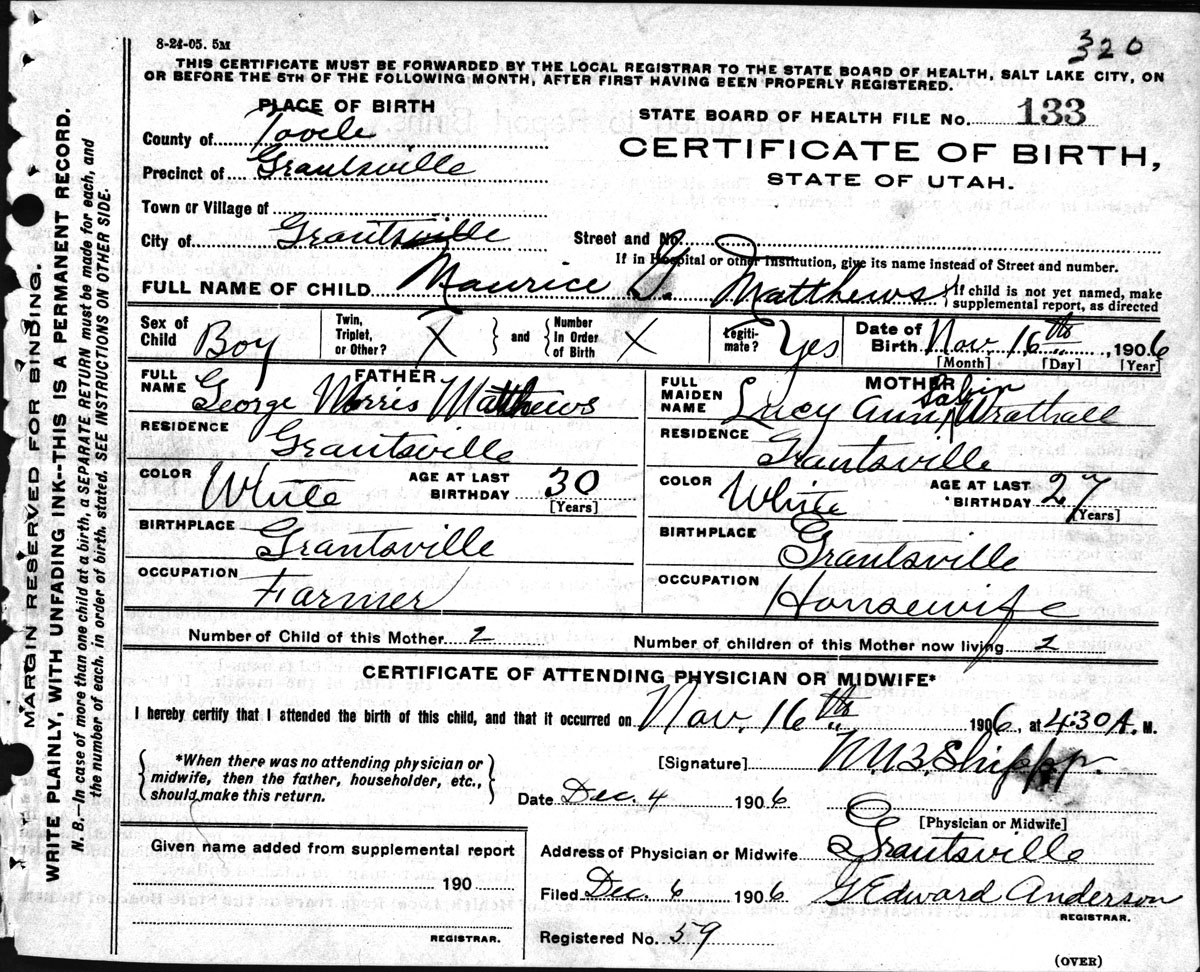 8-24-05. 5M
320
THIS CERTIFICATE MUST BE FORWARDED BY THE LOCAL REGISTRAR TO THE STATE BOARD OF HEALTH, SALT LAKE CITY, ON
OR BEFORE THE 5TH OF THE FOLLOWING MONTH, AFTER FIRST HAVING BEEN PROPERLY REGISTERED.
PLACE OF BIRTH
STATE BOARD OF HEALTH FILE No. 133
County of Tooele
CERTIFICATE OF BIRTH,
Precinct of Grantsville
STATE OF UTAH.
Town or Village of
City of Grantsville
Street and No.
If in Hospital or other Institution, give its name instead of Street and number.
FULL NAME OF CHILD Maurice G. Matthews
If child is not yet named, make
supplemental report, as directed
Sex of Child Boy
Twin, Triplet, or Other? X and Number In Order of Birth X
Legiti-mate? Yes
Date of Birth Nov. 16th, 1906
[Month] [Day] [Year]
FATHER
FULL NAME George Morris Matthews
RESIDENCE Grantsville
COLOR White AGE AT LAST BIRTHDAY 30
[Years]
BIRTHPLACE Grantsville
OCCUPATION Farmer
MOTHER
FULL MAIDEN NAME Lucy Ann Wrathall
RESIDENCE Grantsville
COLOR White AGE AT LAST BIRTHDAY 27
[Years]
BIRTHPLACE Grantsville
OCCUPATION Housewife
Number of Child of this Mother 2
Number of children of this Mother now living 2
CERTIFICATE OF ATTENDING PHYSICIAN OR MIDWIFE*
I hereby certify that I attended the birth of this child, and that it occurred on Nov. 16th 1906, at 4:30 A. M.
*When there was no attending physician or
midwife, then the father, householder, etc.,
should make this return.
[Signature] M.B. Shipp.
Date Dec. 4 1906
[Physician or Midwife]
Address of Physician or Midwife Grantsville
Filed Dec. 6 1906 G Edward Anderson
REGISTRAR.
Registered No. 59
Given name added from supplemental report
190
REGISTRAR.
(OVER)
MARGIN RESERVED FOR BINDING.
WRITE PLAINLY, WITH UNFADING INK--THIS IS A PERMANENT RECORD.
N. B.—In case of more than one child at a birth, a SEPARATE RETURN must be made for each, and
the number of each, in order of birth, stated. SEE INSTRUCTIONS ON OTHER SIDE.